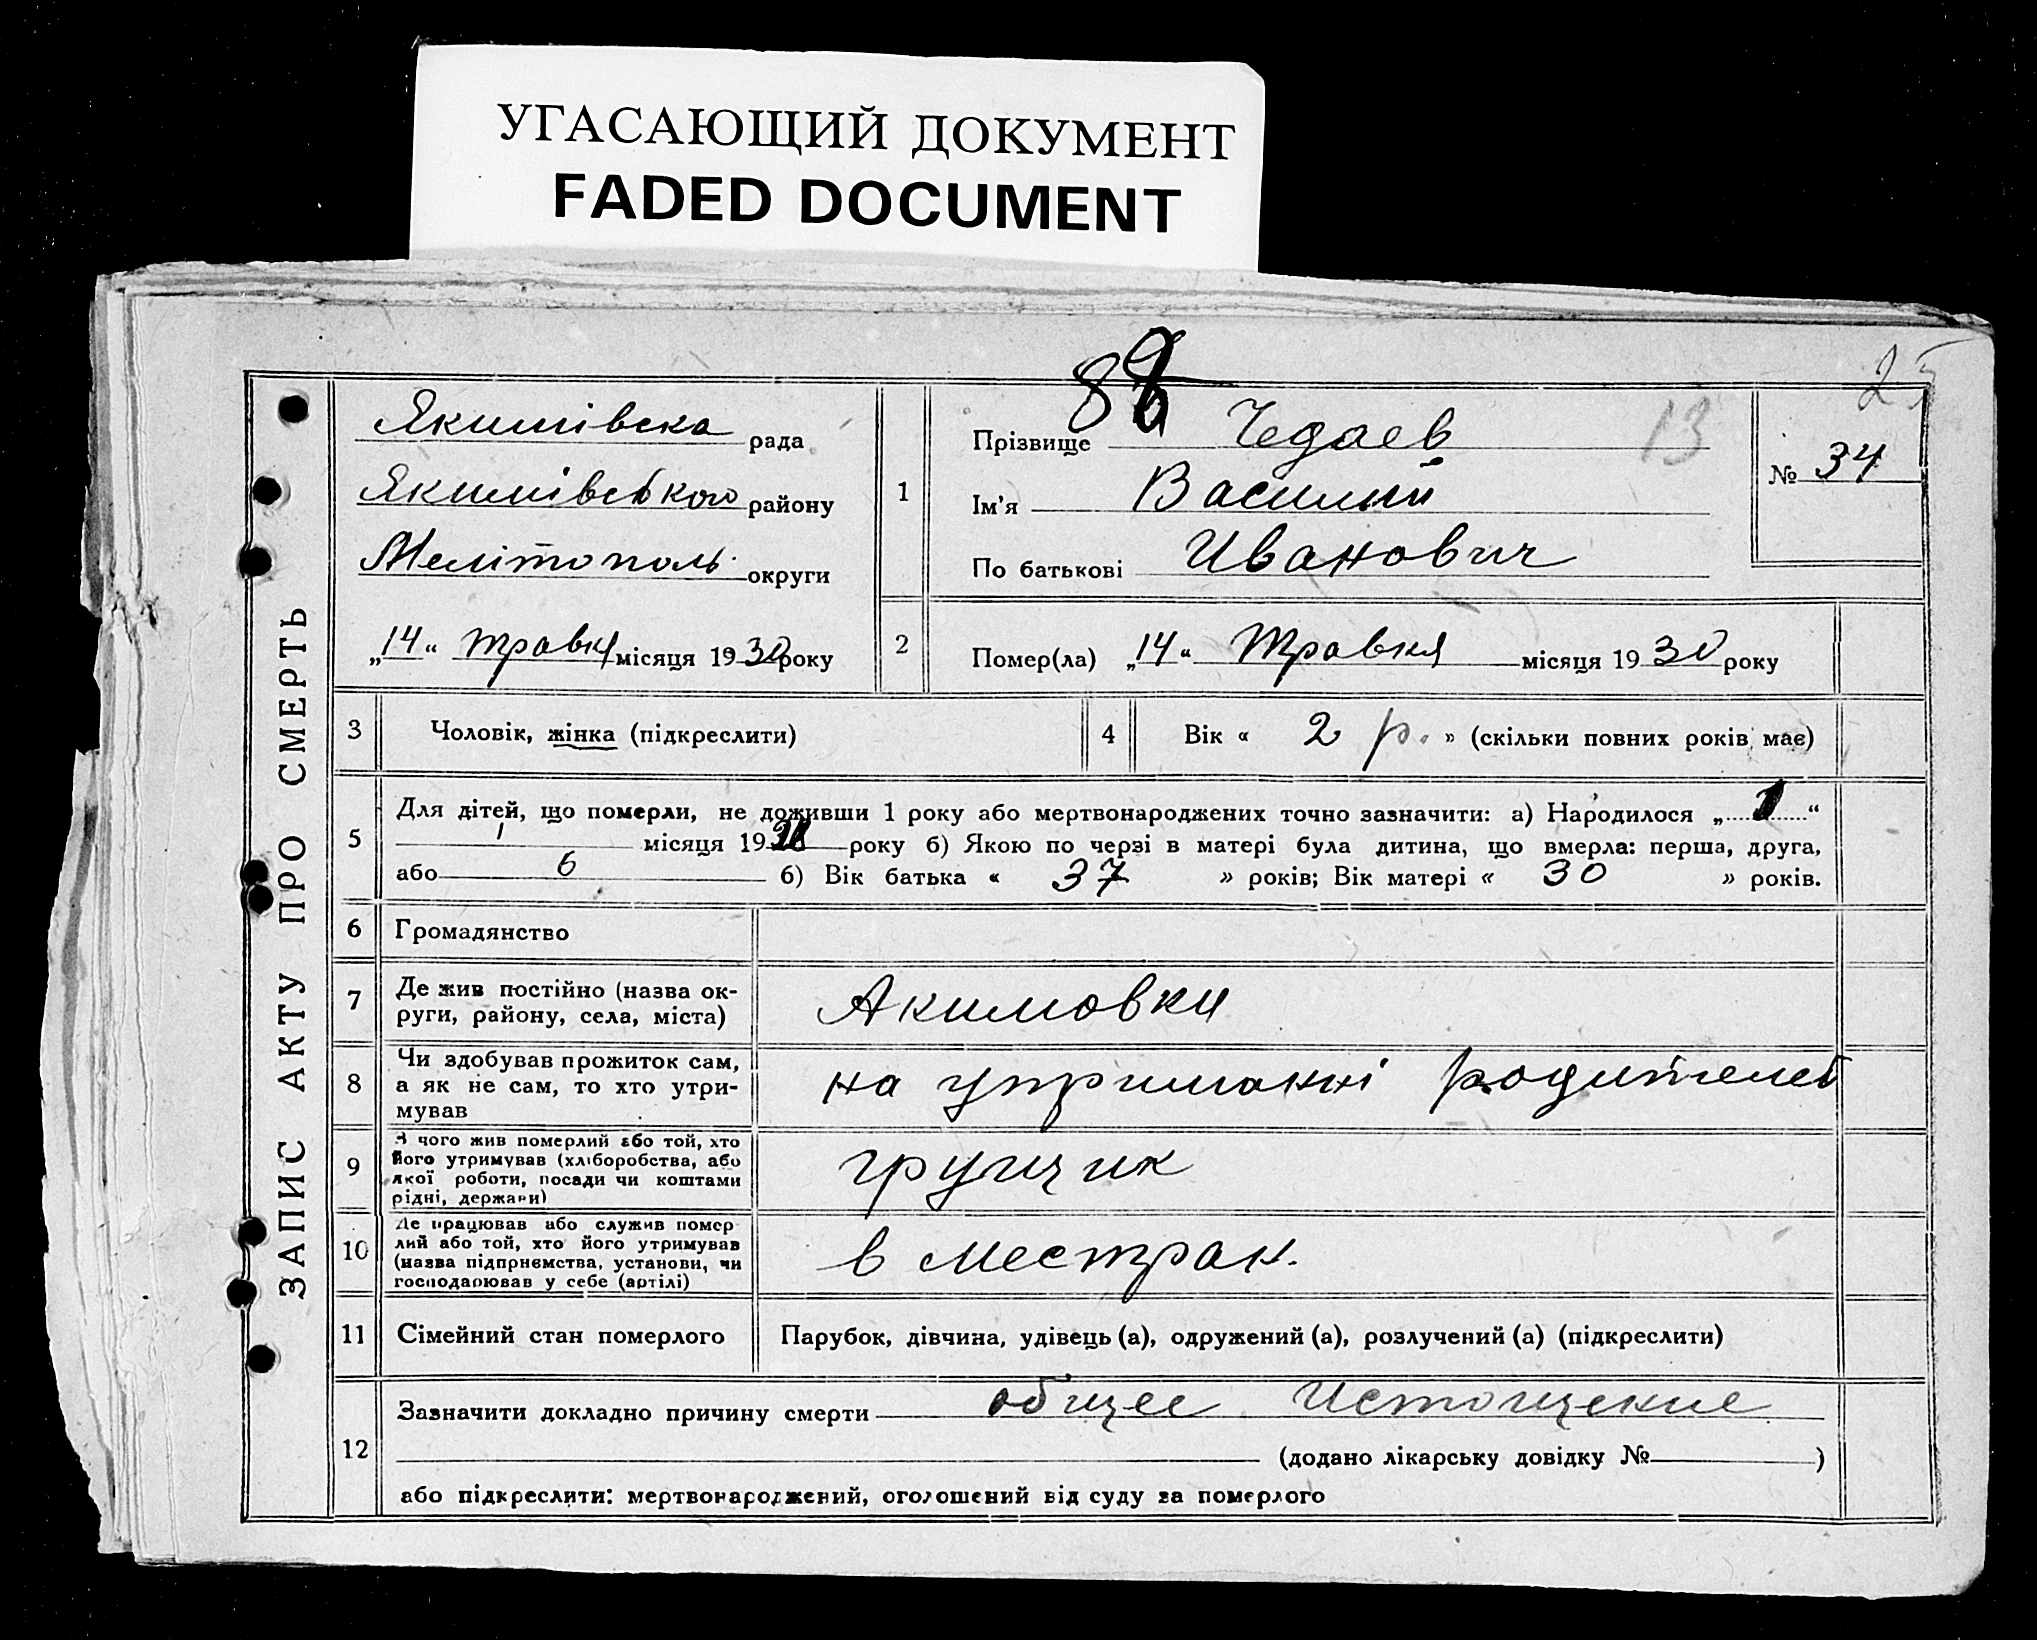 УГАСАЮЩИЙ ДОКУМЕНТ
FADED DOCUMENT
25
88
13
ЗАПИС АКТУ ПРО СМЕРТЬ
Якимівська рада
Якимівського району
Мелітополь. округи
„14“ травня місяця 1930 року
1
Прізвище Чедаев
Ім'я Василий
По батькові Иванович
№ 34
2
Помер(ла) „14“ Травня місяця 1930 року
3
Чоловік, жінка (підкреслити)
4
Вік « 2 р. » (скільки повних років має)
5
Для дітей, що померли, не доживши 1 року або мертвонароджених точно зазначити: а) Народилося „1“
1 місяця 1928 року б) Якою по черзі в матері була дитина, що вмерла: перша, друга,
або 6 б) Вік батька « 37 » років; Вік матері « 30 » років.
6
Громадянство
7
Де жив постійно (назва ок-
руги, району, села, міста)
Акимовка
8
Чи здобував прожиток сам,
а як не сам, то хто утри-
мував
на утриманні родителей
9
З чого жив померлий або той, хто
його утримував (хліборобства, або
якої роботи, посади чи коштами
рідні, держави)
грущик
10
Де працював або служив помер
лий або той, хто його утримував
(назва підприємства, установи, чи
господарював у себе (артілі)
в местран.
11
Сімейний стан померлого
Парубок, дівчина, удівець (а), одружений (а), розлучений (а) (підкреслити)
12
Зазначити докладно причину смерти общее Истощение
(додано лікарську довідку № )
або підкреслити: мертвонароджений, оголошений від суду за померлого